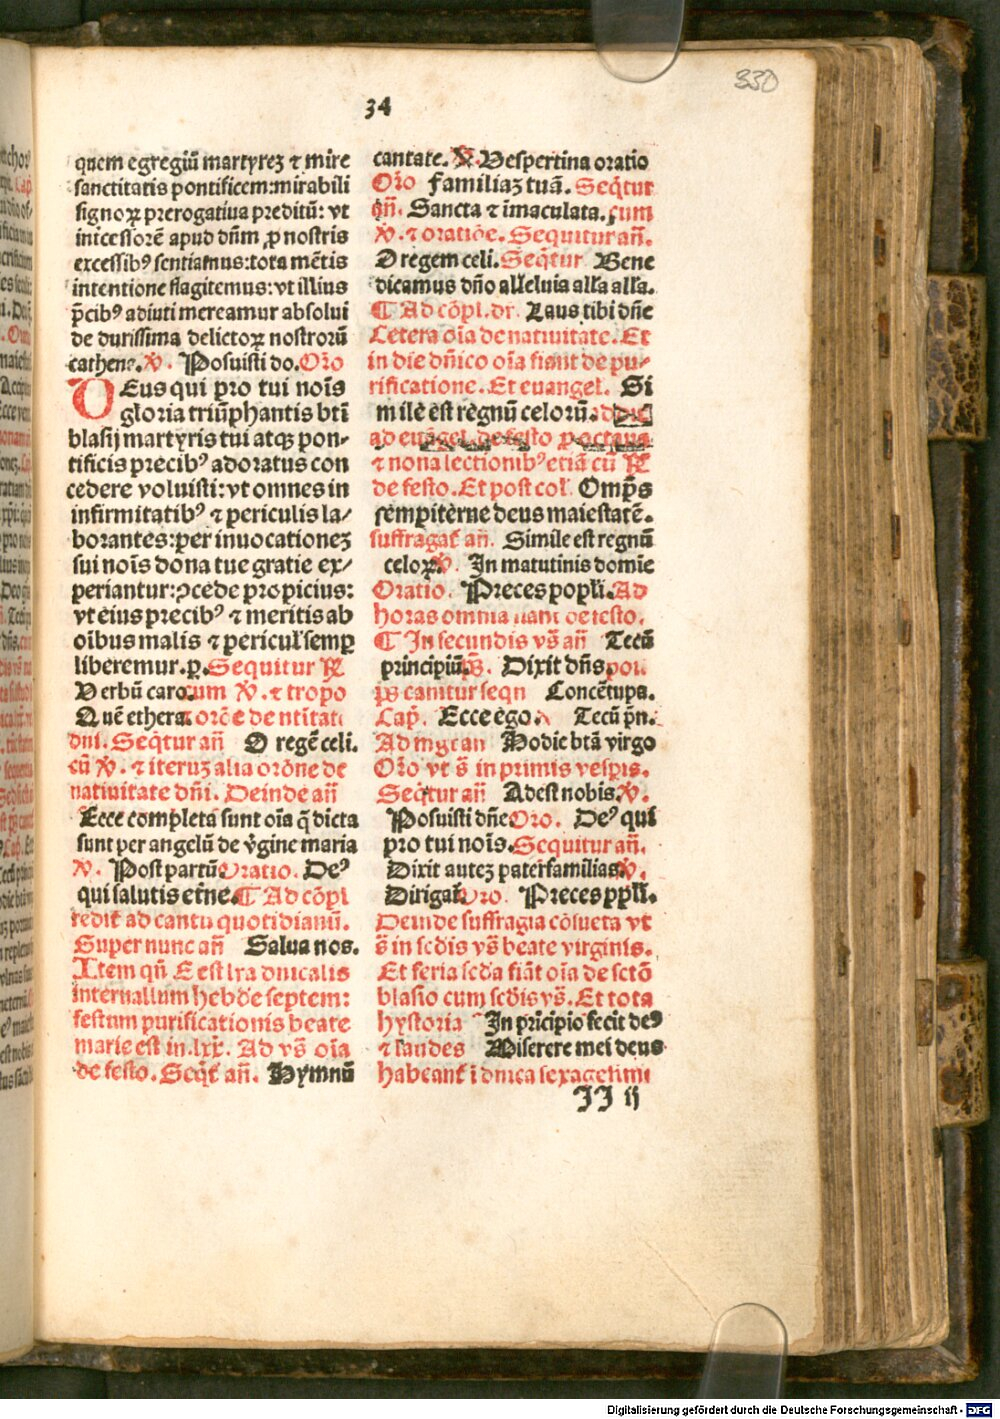 330
34
quem egregiū martyrez ⁊ mire
sanctitatis pontificem: mirabili
signoꝝ prerogatiua preditū: vt
intcessorē apud dn̄m ꝓ nostris
excessibꝰ sentiamus: tota mētis
intentione flagitemus: vt illius
p̄cibꝰ adiuti mereamur absolui
de durissima delictoꝝ nostrorū
cathena. ℣. Posuisti do. Oro
DEus qui pro tui nois
gloria triūphantis btī
blasij martyris tui atqꝫ pon-
tificis precibꝰ adoratus con
cedere voluisti: vt omnes in
infirmitatibꝰ ⁊ periculis la/
borantes: per inuocationeꝫ
sui nois dona tue gratie ex/
periantur: ꝯcede propicius:
vt eius precibꝰ ⁊ meritis ab
oībus malis ⁊ pericul semp
liberemur. p. Sequitur ℟
Verbū caro. cum ℣. ⁊ tropo
Quē ethera. orōe de ntitati
dni. Seqtur añ O regē celi.
cū ℣. ⁊ iteruꝫ alia orōne de
natiuitate dn̄i. Deinde añ
Ecce completa sunt oīa q̄ dicta
sunt per angelū de v̄gine maria
℣. Post partū Oratio. Deꝰ
qui salutis et̄ne. ¶ Ad cōpl
redit ad cantu quotidianū.
Super nunc añ Salua nos.
Item qn̄ E est lra dnicalis
interuallum hebde septem:
festum purificationis beate
marie est in. lxx. Ad vs̄ oīa
de festo. Seqt añ. Hymnū
cantate. ℣. Vespertina oratio
Oro familiaꝫ tuā. Seqtur
añ. Sancta ⁊ īmaculata. cum
℣. ⁊ oratiōe. Sequitur añ.
O regem celi. Seqtur Bene
dicamus dn̄o alleluia alla alla.
¶ Ad cōpl. dr Laus tibi dn̄e
Cetera oīa de natiuitate. Et
in die dn̄ico oīa fiant de pu/
rificatione. Et euangel. Si
mile est regnū celorū.
ad euāgel. de festo p octaua
⁊ nona lectionibꝰ etiā cū ℟
de festo. Et post col Omps
sempiterne deus maiestatē.
suffragat añ. Simile est regnū
celoꝝ ℣. In matutinis domīe
Oratio. Preces popli. Ad
horas omnia fiant de festo.
¶ In secundis vs̄ añ Tecū
principiū. ps. Dixit dn̄s pon.
ps canitur seqn Concētu pa.
Cap. Ecce ego. Tecū pn̄.
Ad mgcan Hodie btā virgo
Oro vt s̄ in primis vespis.
Seqtur añ Adest nobis. ℣.
Posuisti dn̄e Oro. Deꝰ qui
pro tui nois. Sequitur añ.
Dixit auteꝫ paterfamilias ℣.
Dirigat Oro. Preces ppli.
Deinde suffragia cōsueta vt
s̄ in scdis vs̄ beate virginis.
Et feria scda fiāt oīa de sctō
blasio cum scdis vs̄. Et tota
hystoria In prīcipio fecit deꝰ
⁊ laudes Miserere mei deus
habeant ī dnica sexagesimi
JJ ij
Digitalisierung gefördert durch die Deutsche Forschungsgemeinschaft - DFG